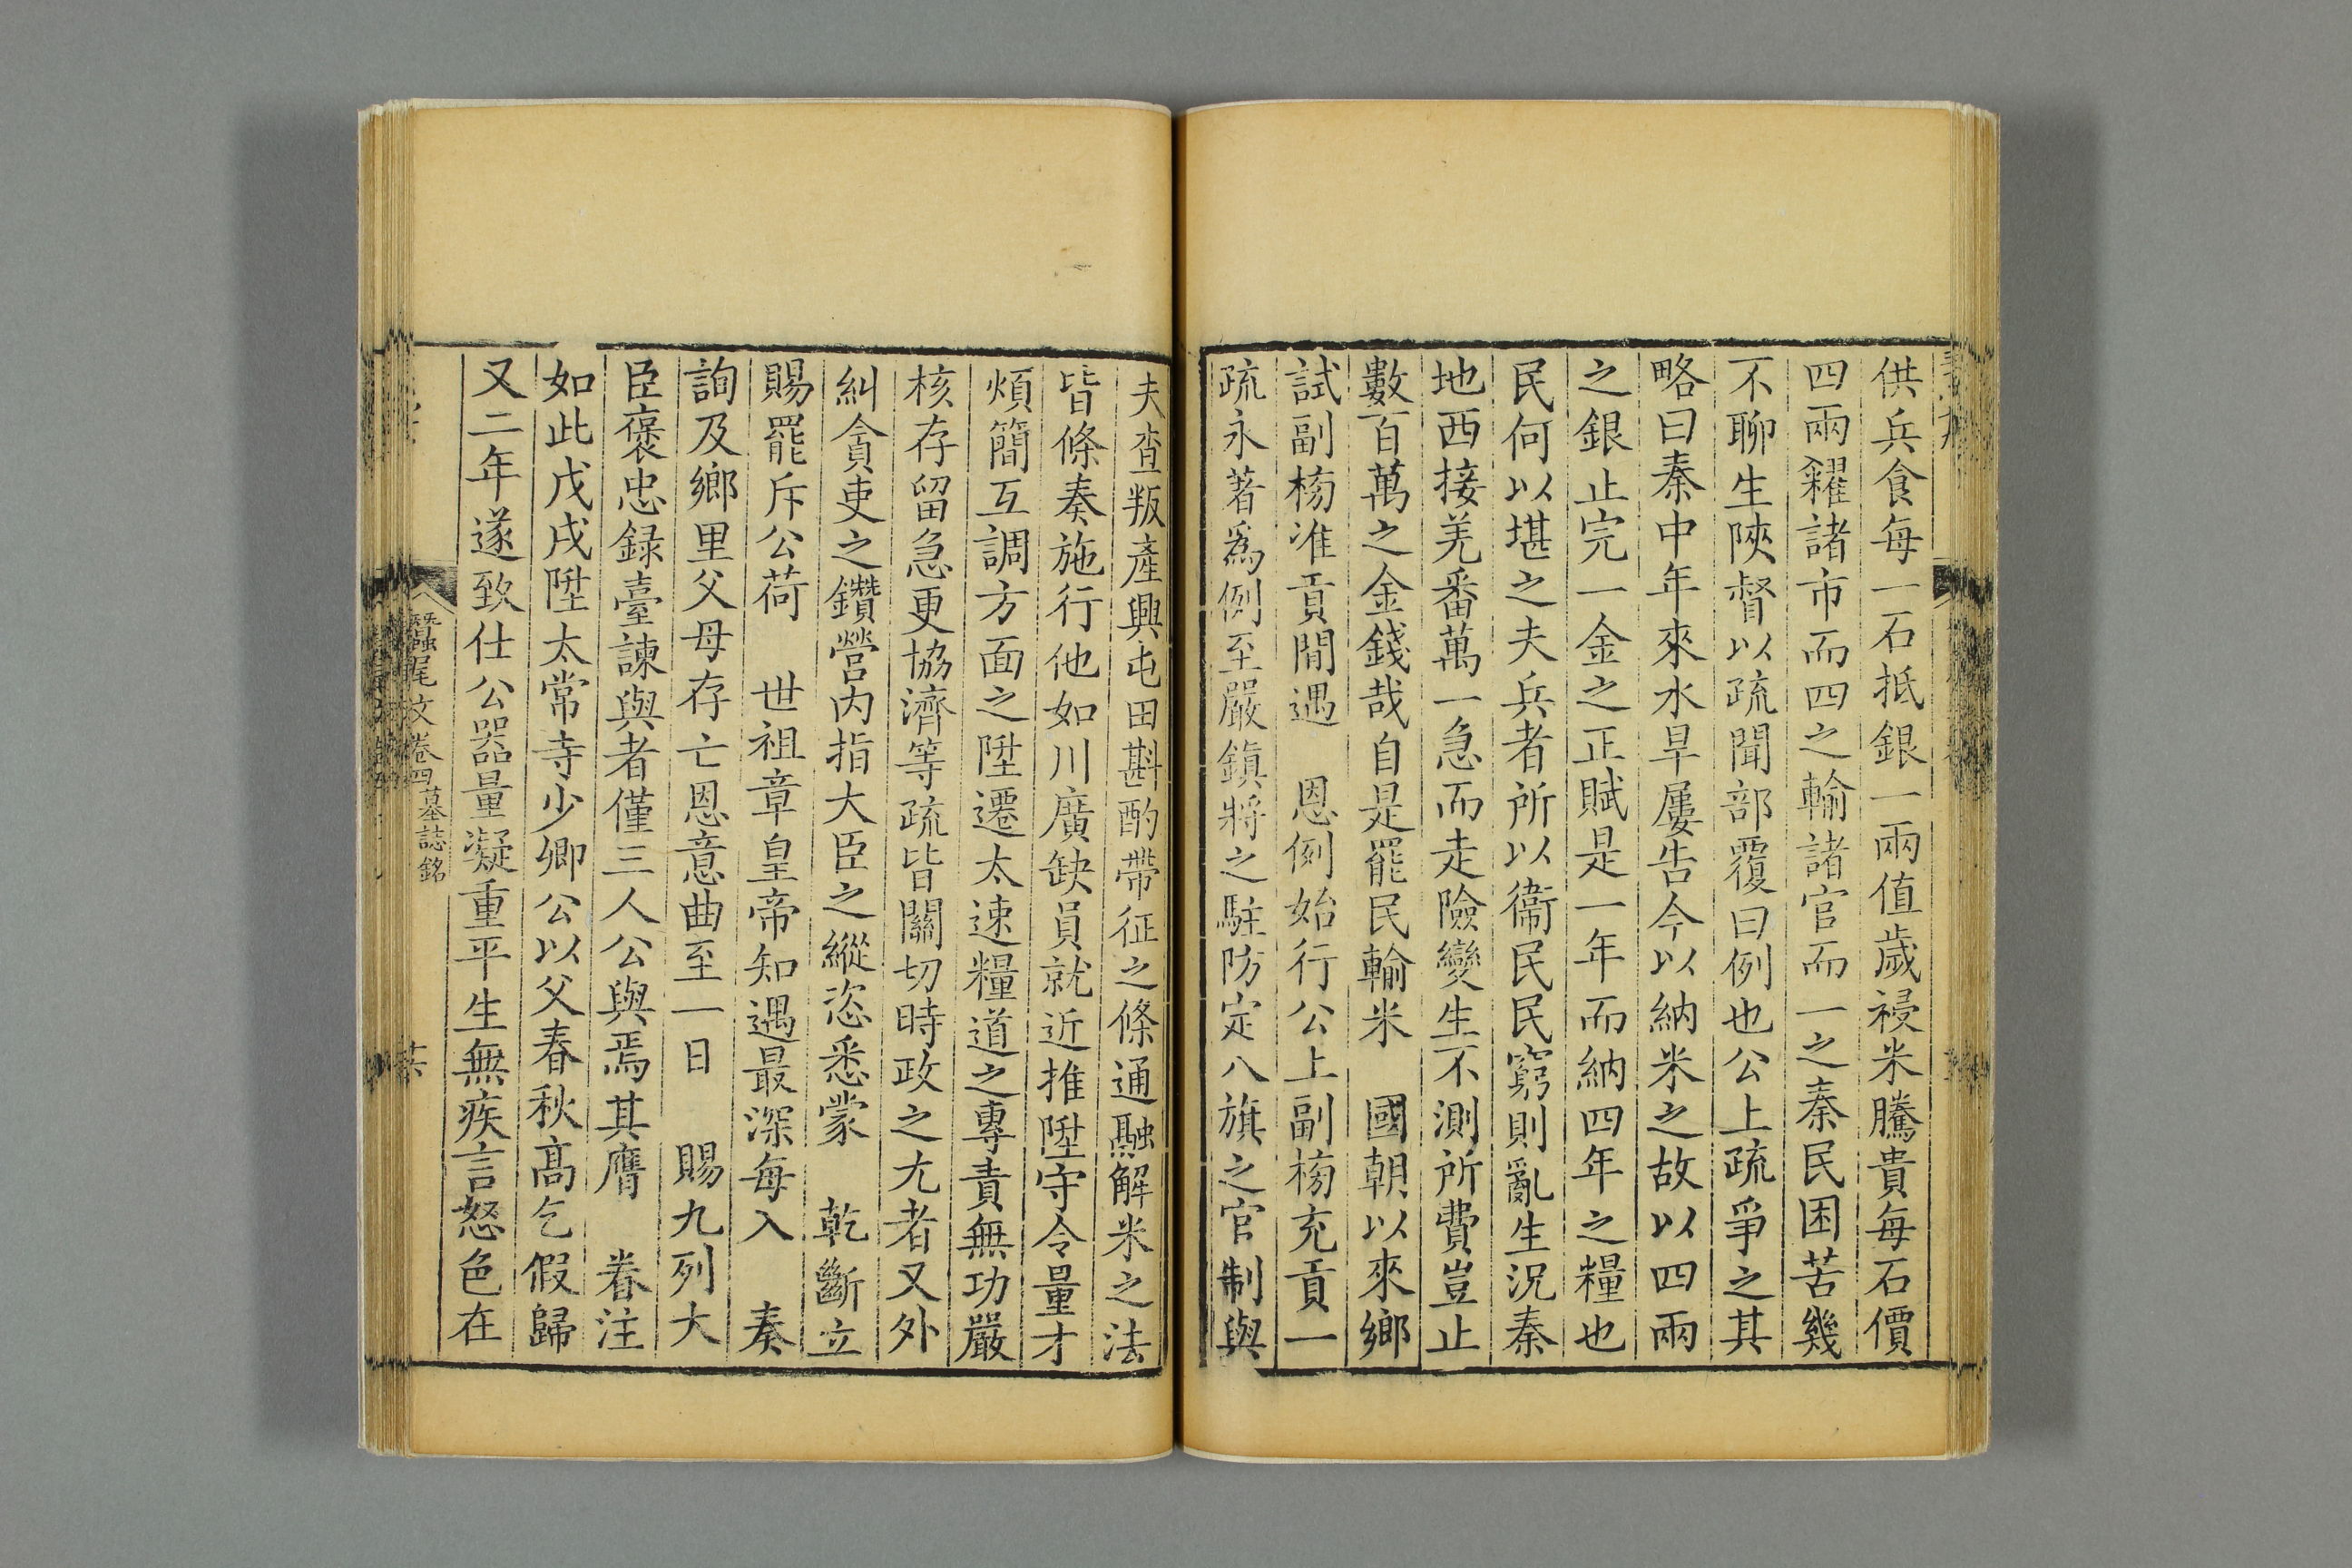 供兵食每一石抵銀一兩值歲祲米騰貴每石價
四兩糴諸市而四之輸諸官而一之秦民困苦幾
不聊生陝督以疏聞部覆曰例也公上疏爭之其
略曰秦中年來水旱屢告今以納米之故以四兩
之銀止完一金之正賦是一年而納四年之糧也
民何以堪之夫兵者所以衞民民窮則亂生況秦
地西接羌番萬一急而走險變生不測所費豈止
數百萬之金錢哉自是罷民輸米　國朝以來鄉
試副榜准貢間遇　恩例始行公上副榜充貢一
疏永著爲例至嚴鎮將之駐防定八旗之官制與
夫查叛產興屯田斟酌帶征之條通融解米之法
皆條奏施行他如川廣缺員就近推陞守令量才
煩簡互調方面之陞遷太速糧道之專責無功嚴
核存留急更協濟等疏皆關切時政之尤者又外
糾貪吏之鑽營内指大臣之縱恣悉蒙　乾斷立
賜罷斥公荷　世祖章皇帝知遇最深每入　奏
詢及鄉里父母存亡恩意曲至一日　賜九列大
臣褒忠録臺諫與者僅三人公與焉其膺　眷注
如此戊戌陞太常寺少卿公以父春秋高乞假歸
又二年遂致仕公器量凝重平生無疾言怒色在
蠶尾文卷四墓誌銘